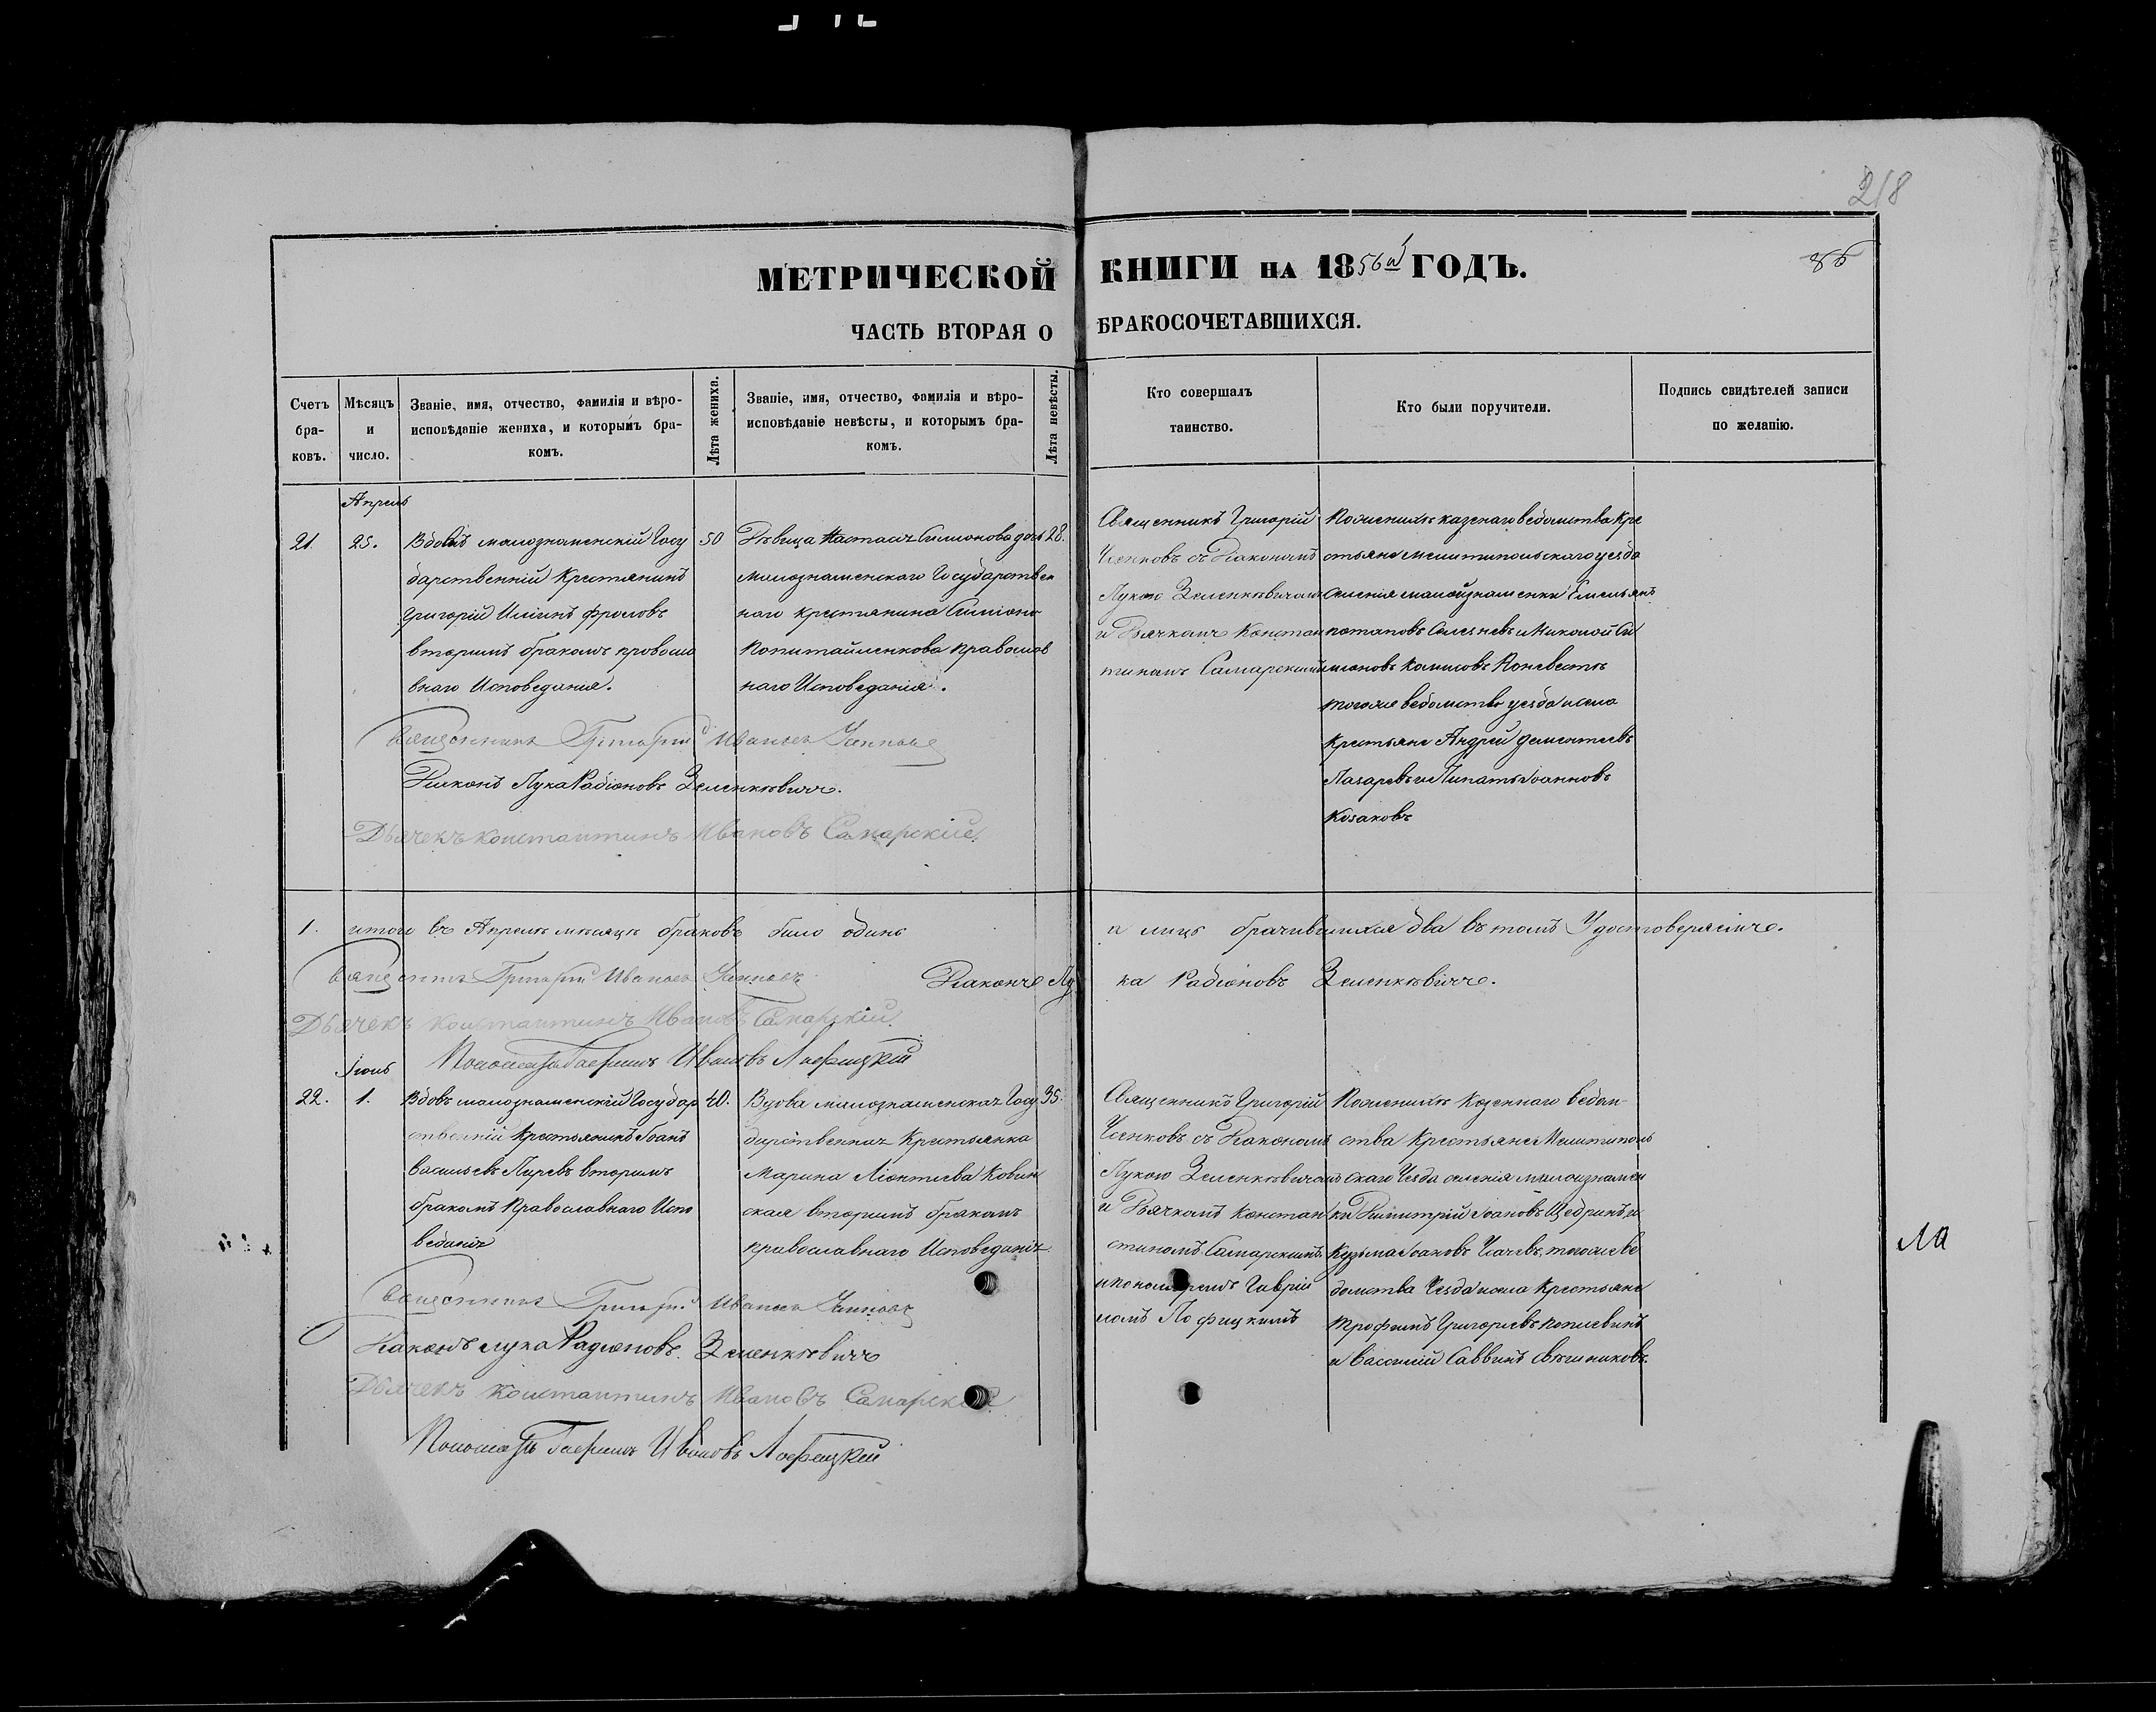 218
МЕТРИЧЕСКОЙ КНИГИ НА 1856й ГОДЪ.
86
ЧАСТЬ ВТОРАЯ О БРАКОСОЧЕТАВШИХСЯ.
Счетъ бра-ковъ.
Мѣсяцъ и число.
Званіе, имя, отчество, фамилія и вѣро-
исповѣданіе жениха, и которымъ бра-
комъ.
Лѣта жениха.
Званіе, имя, отчество, фамилія и вѣро-
исповѣданіе невѣсты, и которымъ бра-
комъ.
Лѣта невѣсты.
Кто совершалъ
таинство.
Кто были поручители.
Подпись свидѣтелей записи
по желанію.
Апрель
21. 25.
Вдовъ малознаменскій Госу
дарственній Крестянинъ
Григорій Илiинъ Фроловъ
вторимъ бракомъ правосла
внаго Исповеданія.
50
Дѣвица Настасія Симионова дочь
малознаменскаго Государствен
наго крестянина Симіона
Копитайленкова православ
наго Исповеданія.
28.
Священникъ Григорій
съ Діакономъ
Лукою Зеленкѣвичомъ
и Дьячкомъ Констан
тиномъ Самарскимъ
Пожениху казенаго ведомства Кре
стьяне мелитопольскаго уезда
селенія малойзнаменки Емельянъ
потаповъ Селезневъ и Николай Си
мионовъ Поневесте
тогоже ведомства уезда и села
Крестьяне Андрей Дементиевъ
Лазаревъ и Іоанновъ
Козаковъ
Священникъ Григорий Ивановъ
Діаконъ Лука Радіоновъ Зеленкѣвичъ.
Дьячекъ Константинъ Ивановъ Самарскій.
1. итого въ Апреле мѣсяцѣ браковъ било одинъ а лицъ брачившихся два въ томъ Удостоверяемъ.
Священникъ Григорий Ивановъ
Діаконъ Лука Радіоновъ Зеленкѣвичъ.
Дьячекъ Константинъ Ивановъ Самарскій.
Пономарь Гавриилъ Ивановъ Лофицкій
22. 1.
Вдовъ малознаменскій Государ
ственній Крестьянинъ Іоанъ
Васильевъ вторимъ
бракомъ Православнаго Испо
веданія
40.
Вдова малознаменская Госу
дарственная Крестьянка
Марина Ліонтиева Ковин
ская вторимъ бракомъ
православнаго Исповеданія
35.
Священникъ Григорій
съ Діакономъ
Лукою Зеленкѣвичомъ
и Дьячкомъ Констан
тиномъ Самарскимъ
и пономаремъ Гаврії
ломъ Лофицкимъ
Пожениху Казеннаго ведом-
ства Крестьяне Мелитополь
скаго Уезда селенія малоизнамен
ки Димитрій Іоановъ Щедринъ, и
Кузьма Іоановъ тогоже Ве
домства Уезда и села Крестьяне
Трофимъ Григориевъ
и Василий Саввинъ
Священникъ Григорий Ивановъ
Діаконъ Лука Радіоновъ. Зеленкѣвичъ
Дьячекъ Константинъ Ивановъ Самарскій
Пономарь Гавриилъ Ивановъ Лофицкій